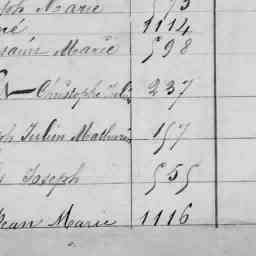 Marie 593
né 1114
Marie 598
Christophe Julien 237
Julien Mathurin 157
Joseph 555
Jean Marie 1116